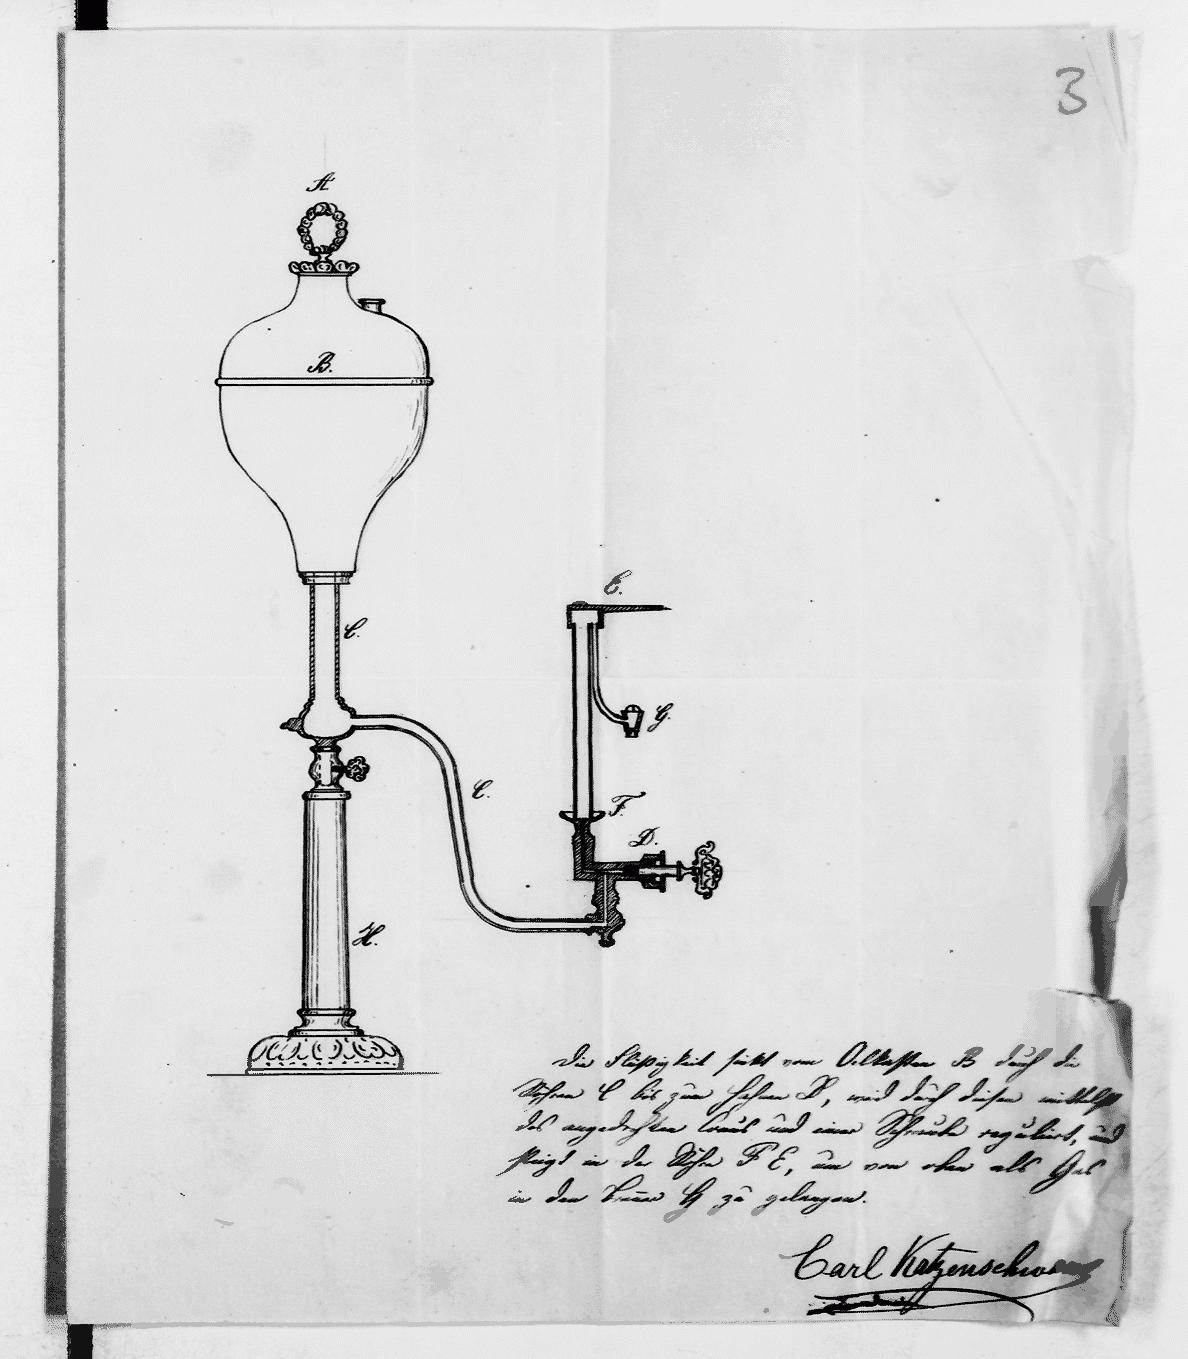 3
A
B.
C.
E.
G.
C.
F.
D.
H.
Die Flüßigkeit sinkt vom Oelkasten B durch die
Röhren C bis zum Hahnen D, wird durch diesen mittelst
des angedrehten Conus und einer Schraube regulirt, und
steigt in der Röhre F E, um von oben als Gas
in den Brenner G zu gelangen.
Carl